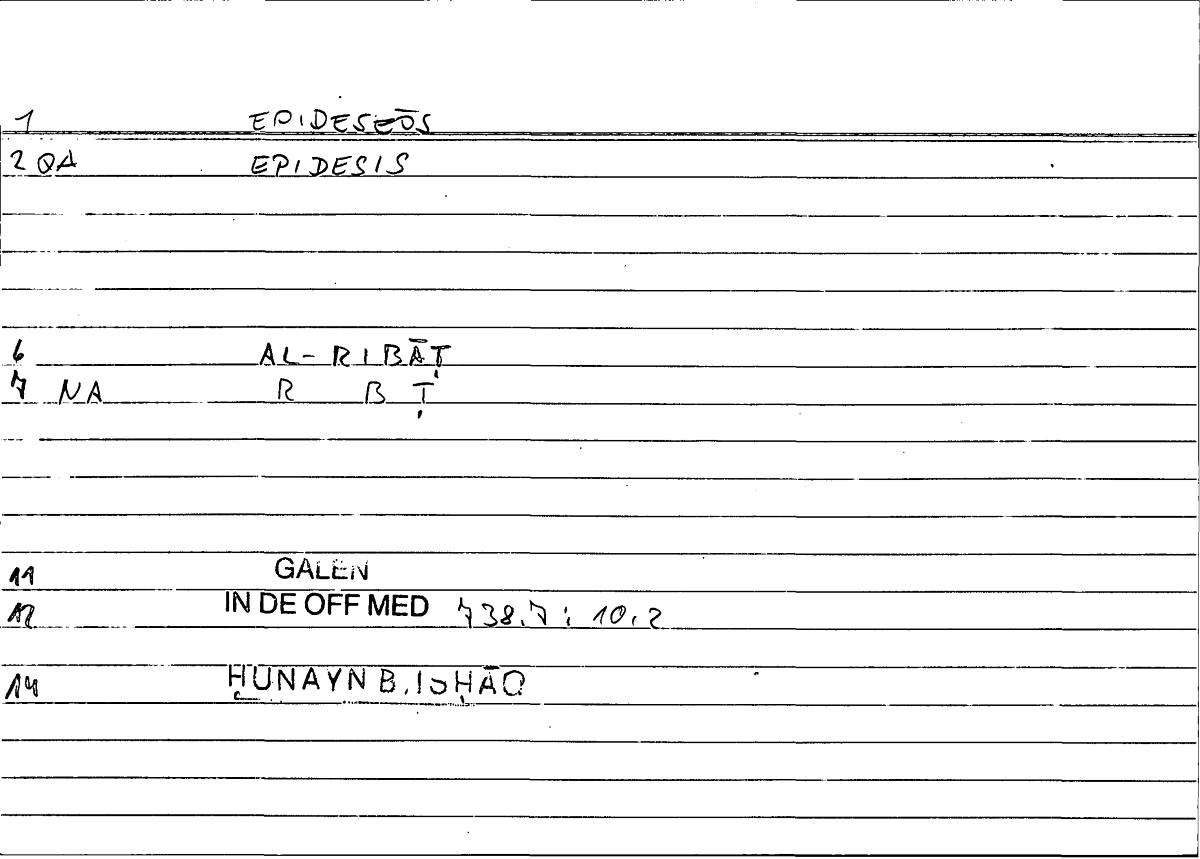 1 EPIDESEŌS
2 QA EPIDESIS
6 AL-RIBĀṬ
7 NA R B Ṭ
11 GALEN
12 IN DE OFF MED 738.7 ; 10.2
14 ḤUNAYN B. ISḤĀQ